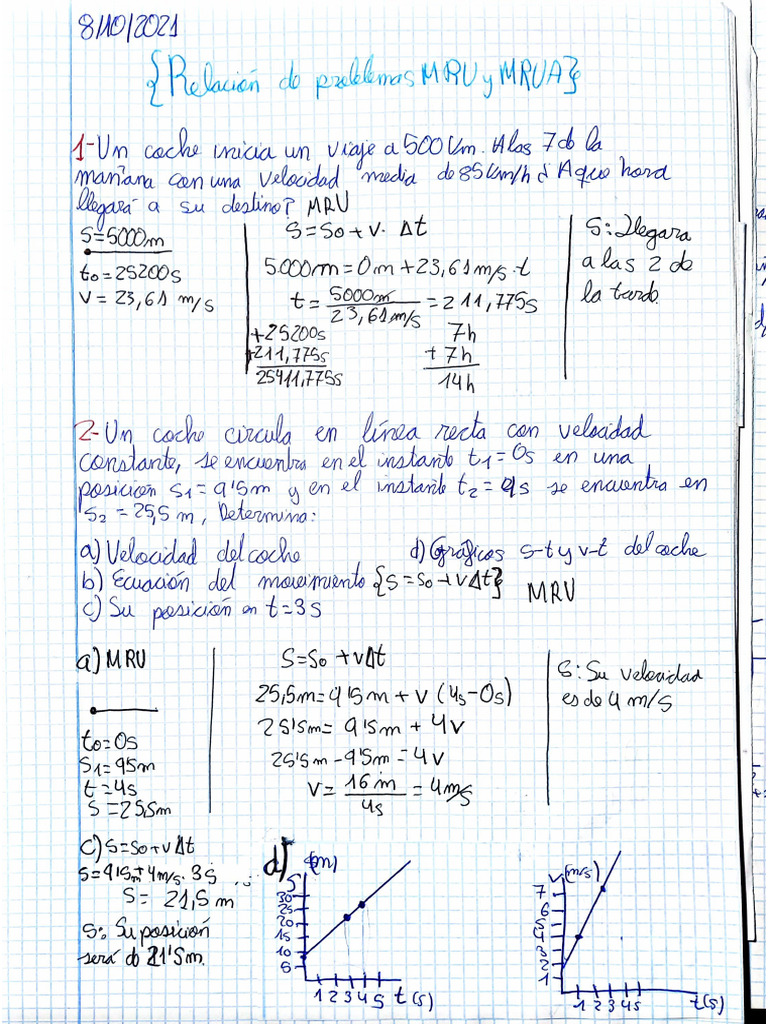 8/10/2021
{Relación de problemas MRU y MRUA}
1-Un coche inicia un viaje a 500 Km. A las 7 de la
mañana con una velocidad media de 85 Km/h ¿ A que hora
llegará a su destino? MRU
S=5000m
t₀=25200s
V=23,61 m/s
S=S₀+V·Δt
5000m=0m+23,61m/s·t
t=5000m/23,61m/s=211,775s
+25200s
+211,775s
25411,775s
7h
+7h
14h
S: Llegara
a las 2 de
la tarde
2-Un coche circula en línea recta con velocidad
constante, se encuentra en el instante t₁=0s en una
posición s₁=9'5m y en el instante t₂=4s se encuentra en
s₂=25,5 m, Determina:
a) Velocidad del coche
d) Gráficos s-t y v-t del coche
b) Ecuación del movimiento {S=S₀+VΔt} MRU
c) Su posición en t=3s
a) MRU
t₀=0s
S₁=95m
t=4s
S=25,5m
S=S₀+VΔt
25,5m=9'5m+V (4s-0s)
25'5m=9'5m+4V
25'5m-9'5m=4V
V=16m/4s=4m/s
S: Su velocidad
es de 4 m/s
c) S=S₀+VΔt
S=9'5m+4m/s·3s
S=21,5m
S: Su posición
será de 21'5m.
d)
(m)
S
30
25
20
15
10
5
1 2 3 4 5 t(s)
V(m/s)
7
6
5
4
3
2
1
1 2 3 4 5 t(s)